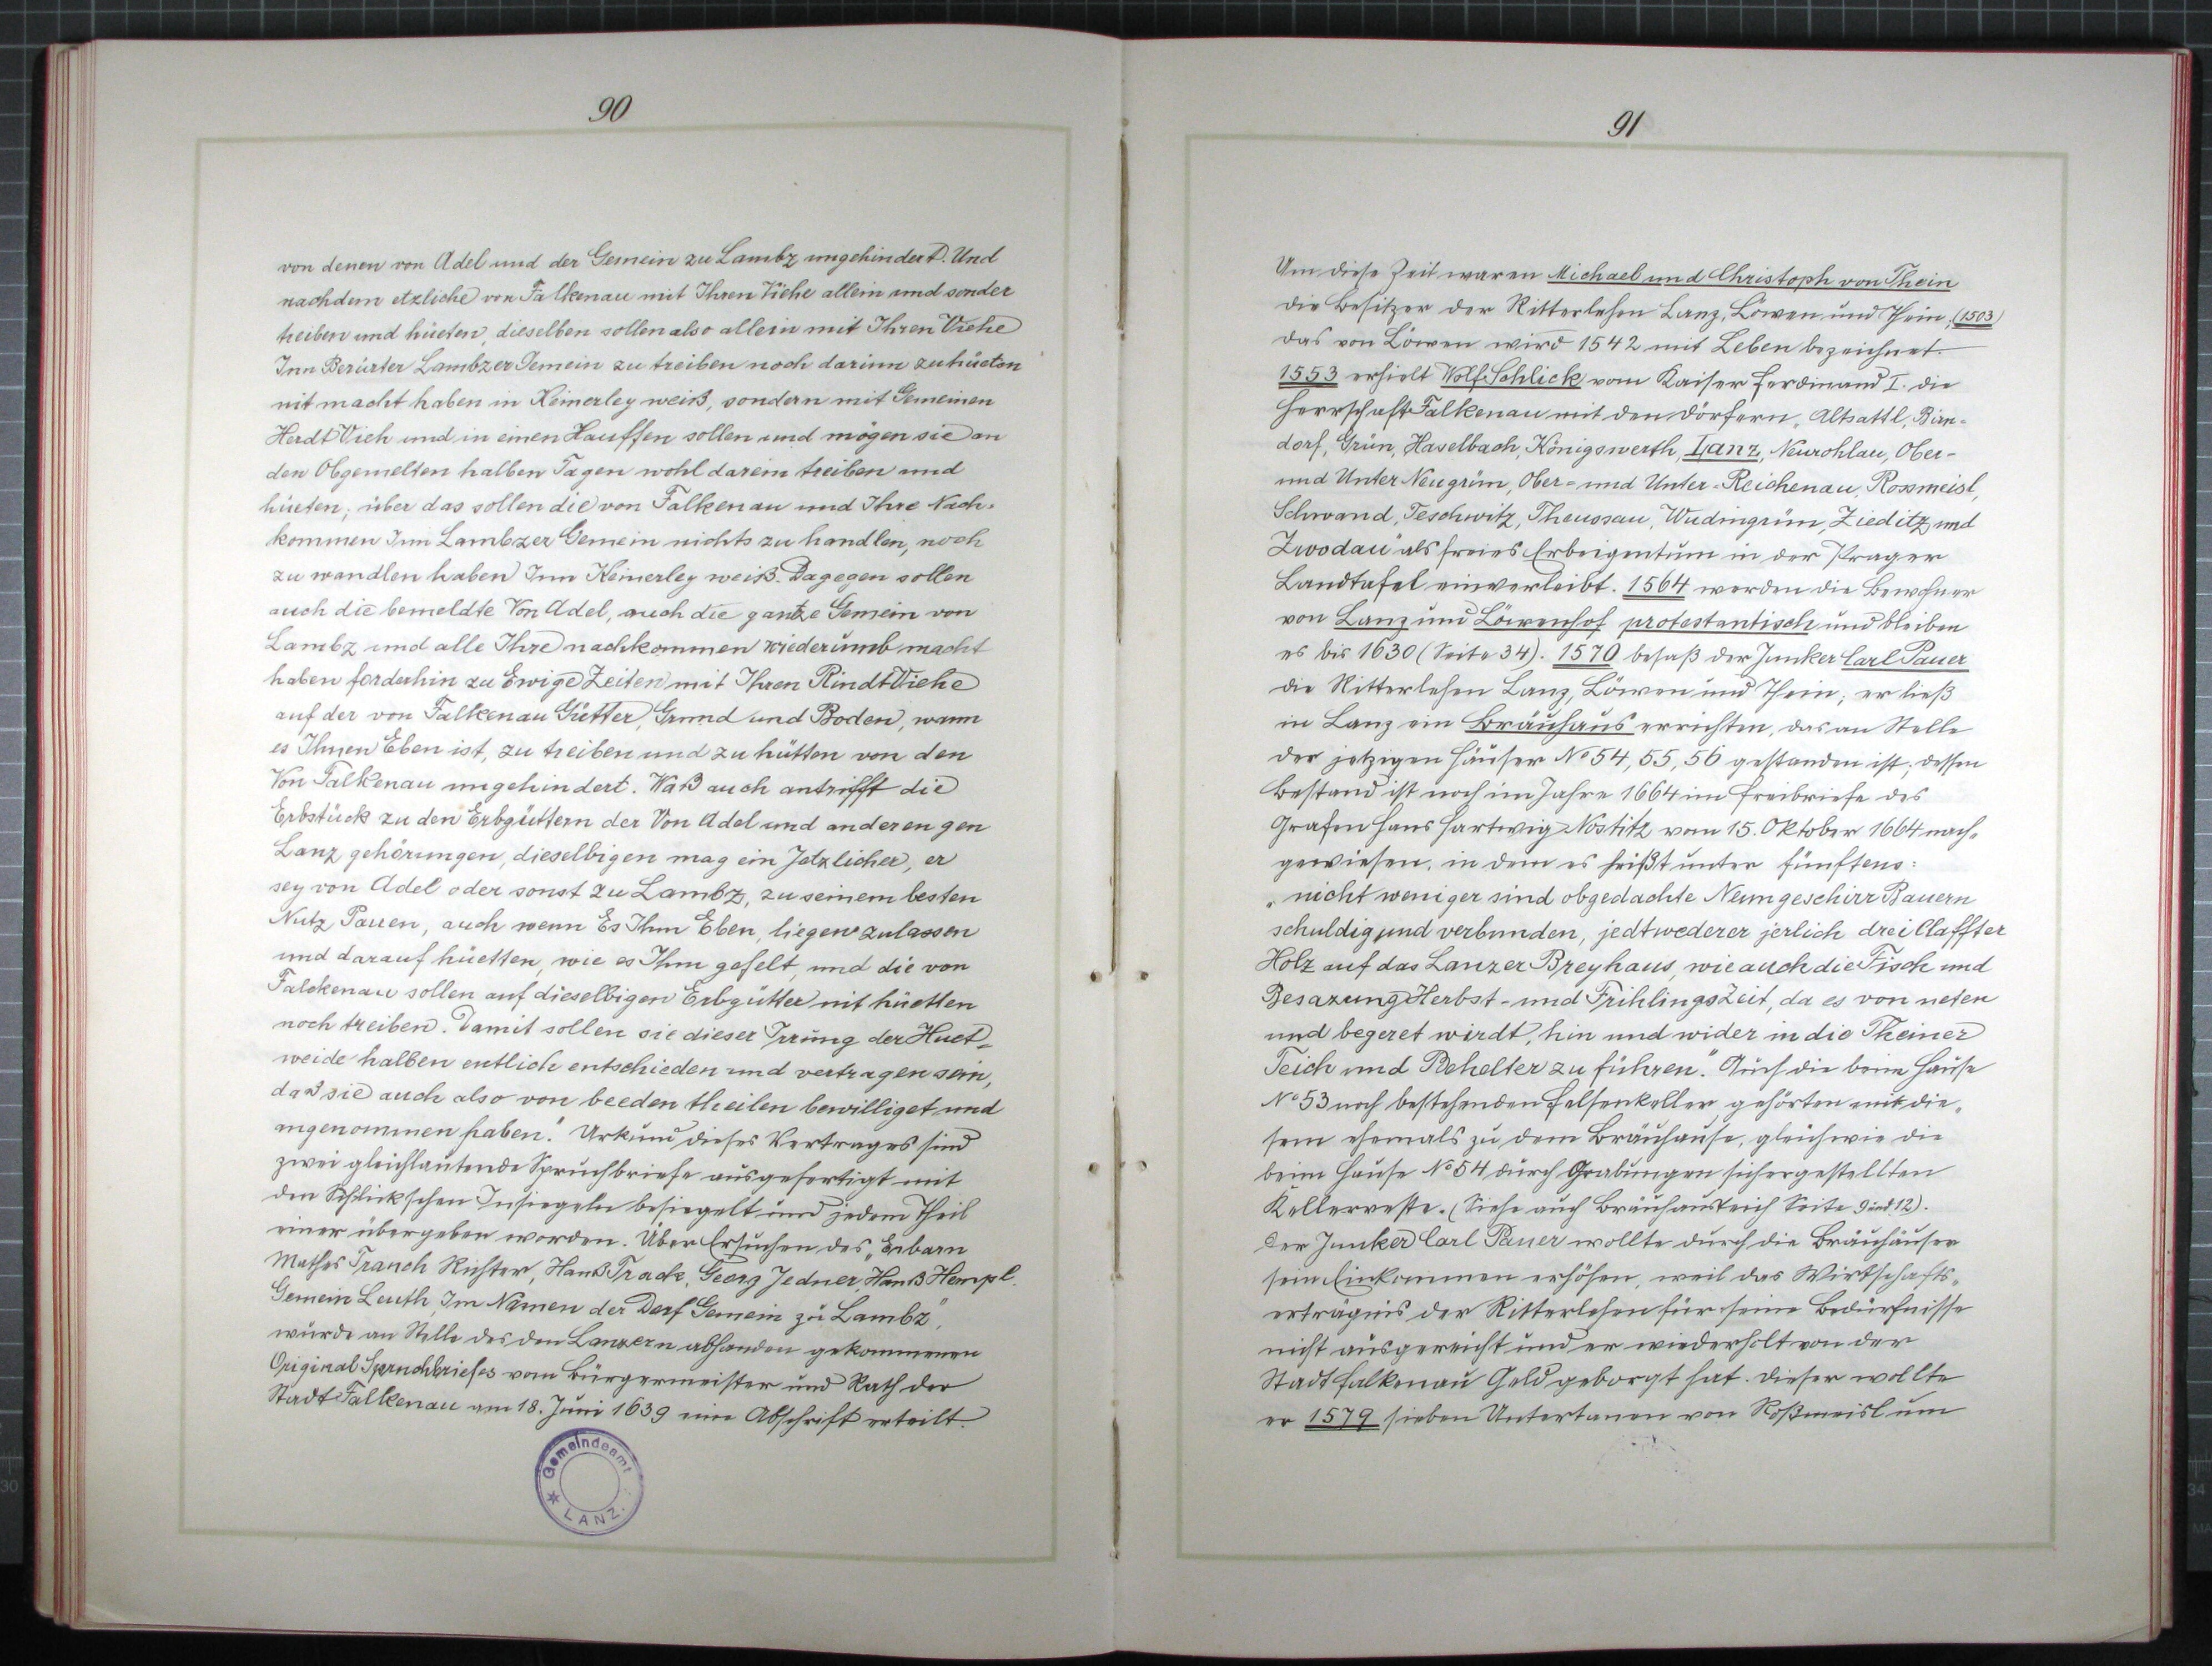 90
von denen von Adel und der Gemein zu Lambz ungehindert. Und
nachdem etzliche von Falkenau mit Ihren Viehe allein und sonder
treiben und hüeten, dieselben sollen also allein mit Ihren Viehe
Inn Berürter Lambzer Gemein zu treiben noch darinn zu hüeten
nit macht haben in Keinerley weiß, sondern mit Gemeinen
Herdt Vieh und in einen Hauffen sollen und mögen sie an
den Obgemelten halben Tagen wohl darein treiben und
hüeten; über das sollen die von Falkenau und Ihre Nach-
kommen Inn Lambzer Gemein nichts zu handlen, noch
zu wandlen haben Inn Keinerley weiß. Dagegen sollen
auch die bemeldte Von Adel, auch die gantze Gemein von
Lambz und alle Ihre nachkommen wiederumb macht
haben forderhin zu Ewige Zeiten mit Ihren Rindt Viehe
auf der von Falkenau Güetter, Grund und Boden, wann
es Ihnen Eben ist, zu treiben und zu hütten von den
Von Falkenau ungehindert. Waß auch antrifft die
Erbstück zu den Erbgüttern der Von Adel und anderen gen
Lanz gehörungen, dieselbigen mag ein Jetzlicher, er
sey von Adel oder sonst zu Lambz, zu seinem besten
Nutz Pauen, auch wenn Es Ihm Eben, liegen zulassen
und darauf hüetten, wie es Ihm gefelt, und die von
Falckenau sollen auf dieselbigen Erbgütter nit hüetten
noch treiben. Damit sollen sie dieser Irrung der Huet-
weide halben entlich entschieden und vertragen sein,
daß sie auch also von beeden theilen bewilliget und
angenommen haben." Urkund dieses Vertrages sind
zwei gleichlautende Spruchbriefe ausgefertigt mit
den Schlickschen Insiegeln besiegelt und jedem Theil
einer übergeben worden. Über Ersuchen des „Erbarn
Mathes Tranch Richter, Hanß Track, Georg Jedner, Hanß Hempl.
Gemein Leuth, Im Namen der Dorf Gemein zu Lambz",
wurde an Stelle des den Lanzern abhanden gekommenen
Original Spruchbriefes vom Bürgermeister und Rath der
Stadt Falkenau am 18. Juni 1639 eine Abschrift erteilt.
Gemeindeamt
* LANZ.
91
Um diese Zeit waren Michael und Christoph von Thein
die Besitzer der Ritterlehen Lanz, Löwen und Thein, (1503)
das von Löwen wird 1542 mit Leben bezeichnet.
1553 erhielt Wolf Schlick vom Kaiser Ferdinand I. die
Herrschaft Falkenau mit den Dörfern „Altsattl, Birn-
dorf, Grün, Haselbach, Königswerth, Lanz, Neurohlau, Ober-
und Unter Neugrün, Ober- und Unter-Reichenau, Rossmeisl,
Schwand, Teschwitz, Theussau, Wudingrün, Zieditz und
Zwodau" als freies Erbeigentum in der Prager
Landtafel einverleibt. 1564 werden die Bewohner
von Lanz und Löwenhof protestantisch und bleiben
es bis 1630 (Seite 34). 1570 besaß der Junker Carl Pauer
die Ritterlehen Lanz, Löwen und Thein; er ließ
in Lanz ein Bräuhaus errichten, das an Stelle
der jetzigen Häuser No 54, 55, 56 gestanden ist; dessen
Bestand ist noch im Jahre 1664 im Freibriefe des
Grafen Hans Hartwig Nostitz vom 15. Oktober 1664 nach-
gewiesen, in dem es heißt unter fünftens:
„nicht weniger sind obgedachte Neungeschirr Bauern
schuldig und verbunden, jedtwederer jerlich drei Claffter
Holz auf das Lanzer Breyhaus, wie auch die Fisch und
Besazung Herbst- und Frihlings Zeit, da es von neten
und begeret wirdt, hin und wider in die Theiner
Teich und Behelter zu führen". Auch die beim Hause
No 53 noch bestehenden Felsenkeller gehörten mit die-
sem ehemals zu dem Bräuhause, gleichwie die
beim Hause No 54 durch Grabungen sichergestellten
Kellerreste. (Siehe auch Bräuhausteich Seite 9 und 12).
Der Junker Carl Pauer wollte durch die Bräuhäuser
sein Einkommen erhöhen, weil das Wirtschafts-
erträgnis der Ritterlehen für seine Bedürfnisse
nicht ausgereicht und er wiederholt von der
Stadt Falkenau Geld geborgt hat. Dieser wollte
er 1579 sieben Untertanen von Roßmeisl um